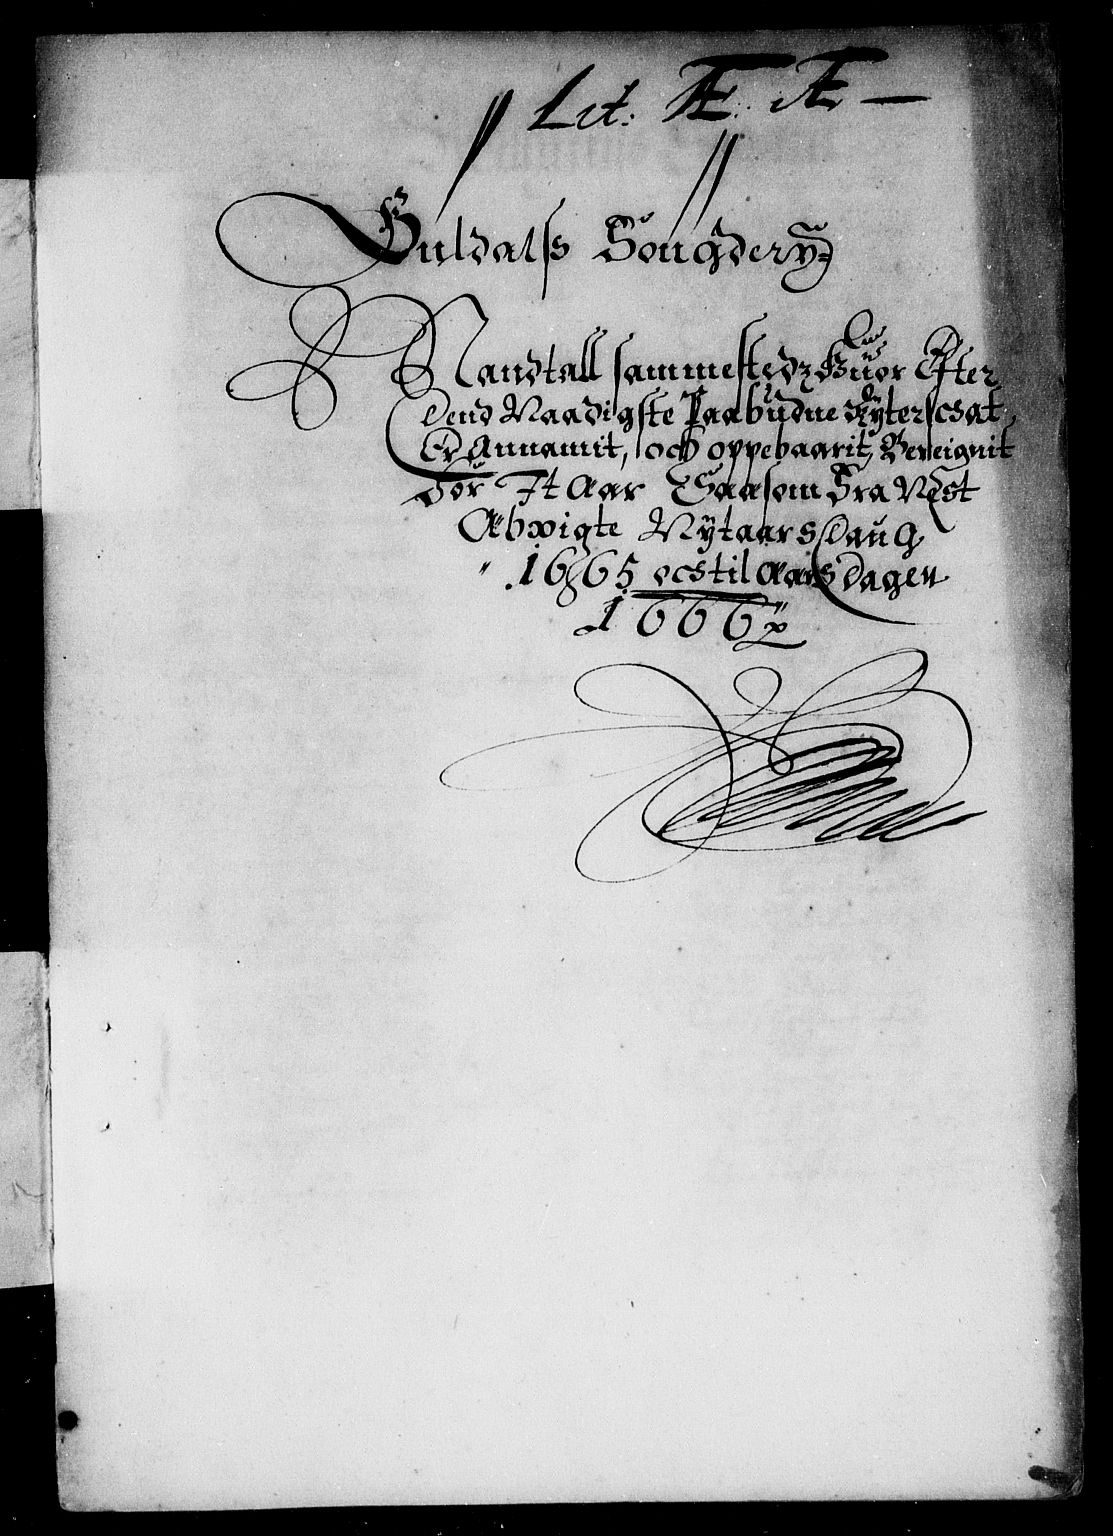 Lit: Æ. Æ —
Guldals Fougderÿ
Mandtall sammestedz Huor Efter
Dend Naadigste Paabudne Rÿter Schat
Er Annamit, och oppebaarit, Bereignit
For It Aar Saasom Fra Nest
Abwigte Nÿtaars Daug
1665 och til Aars Dagen
1666